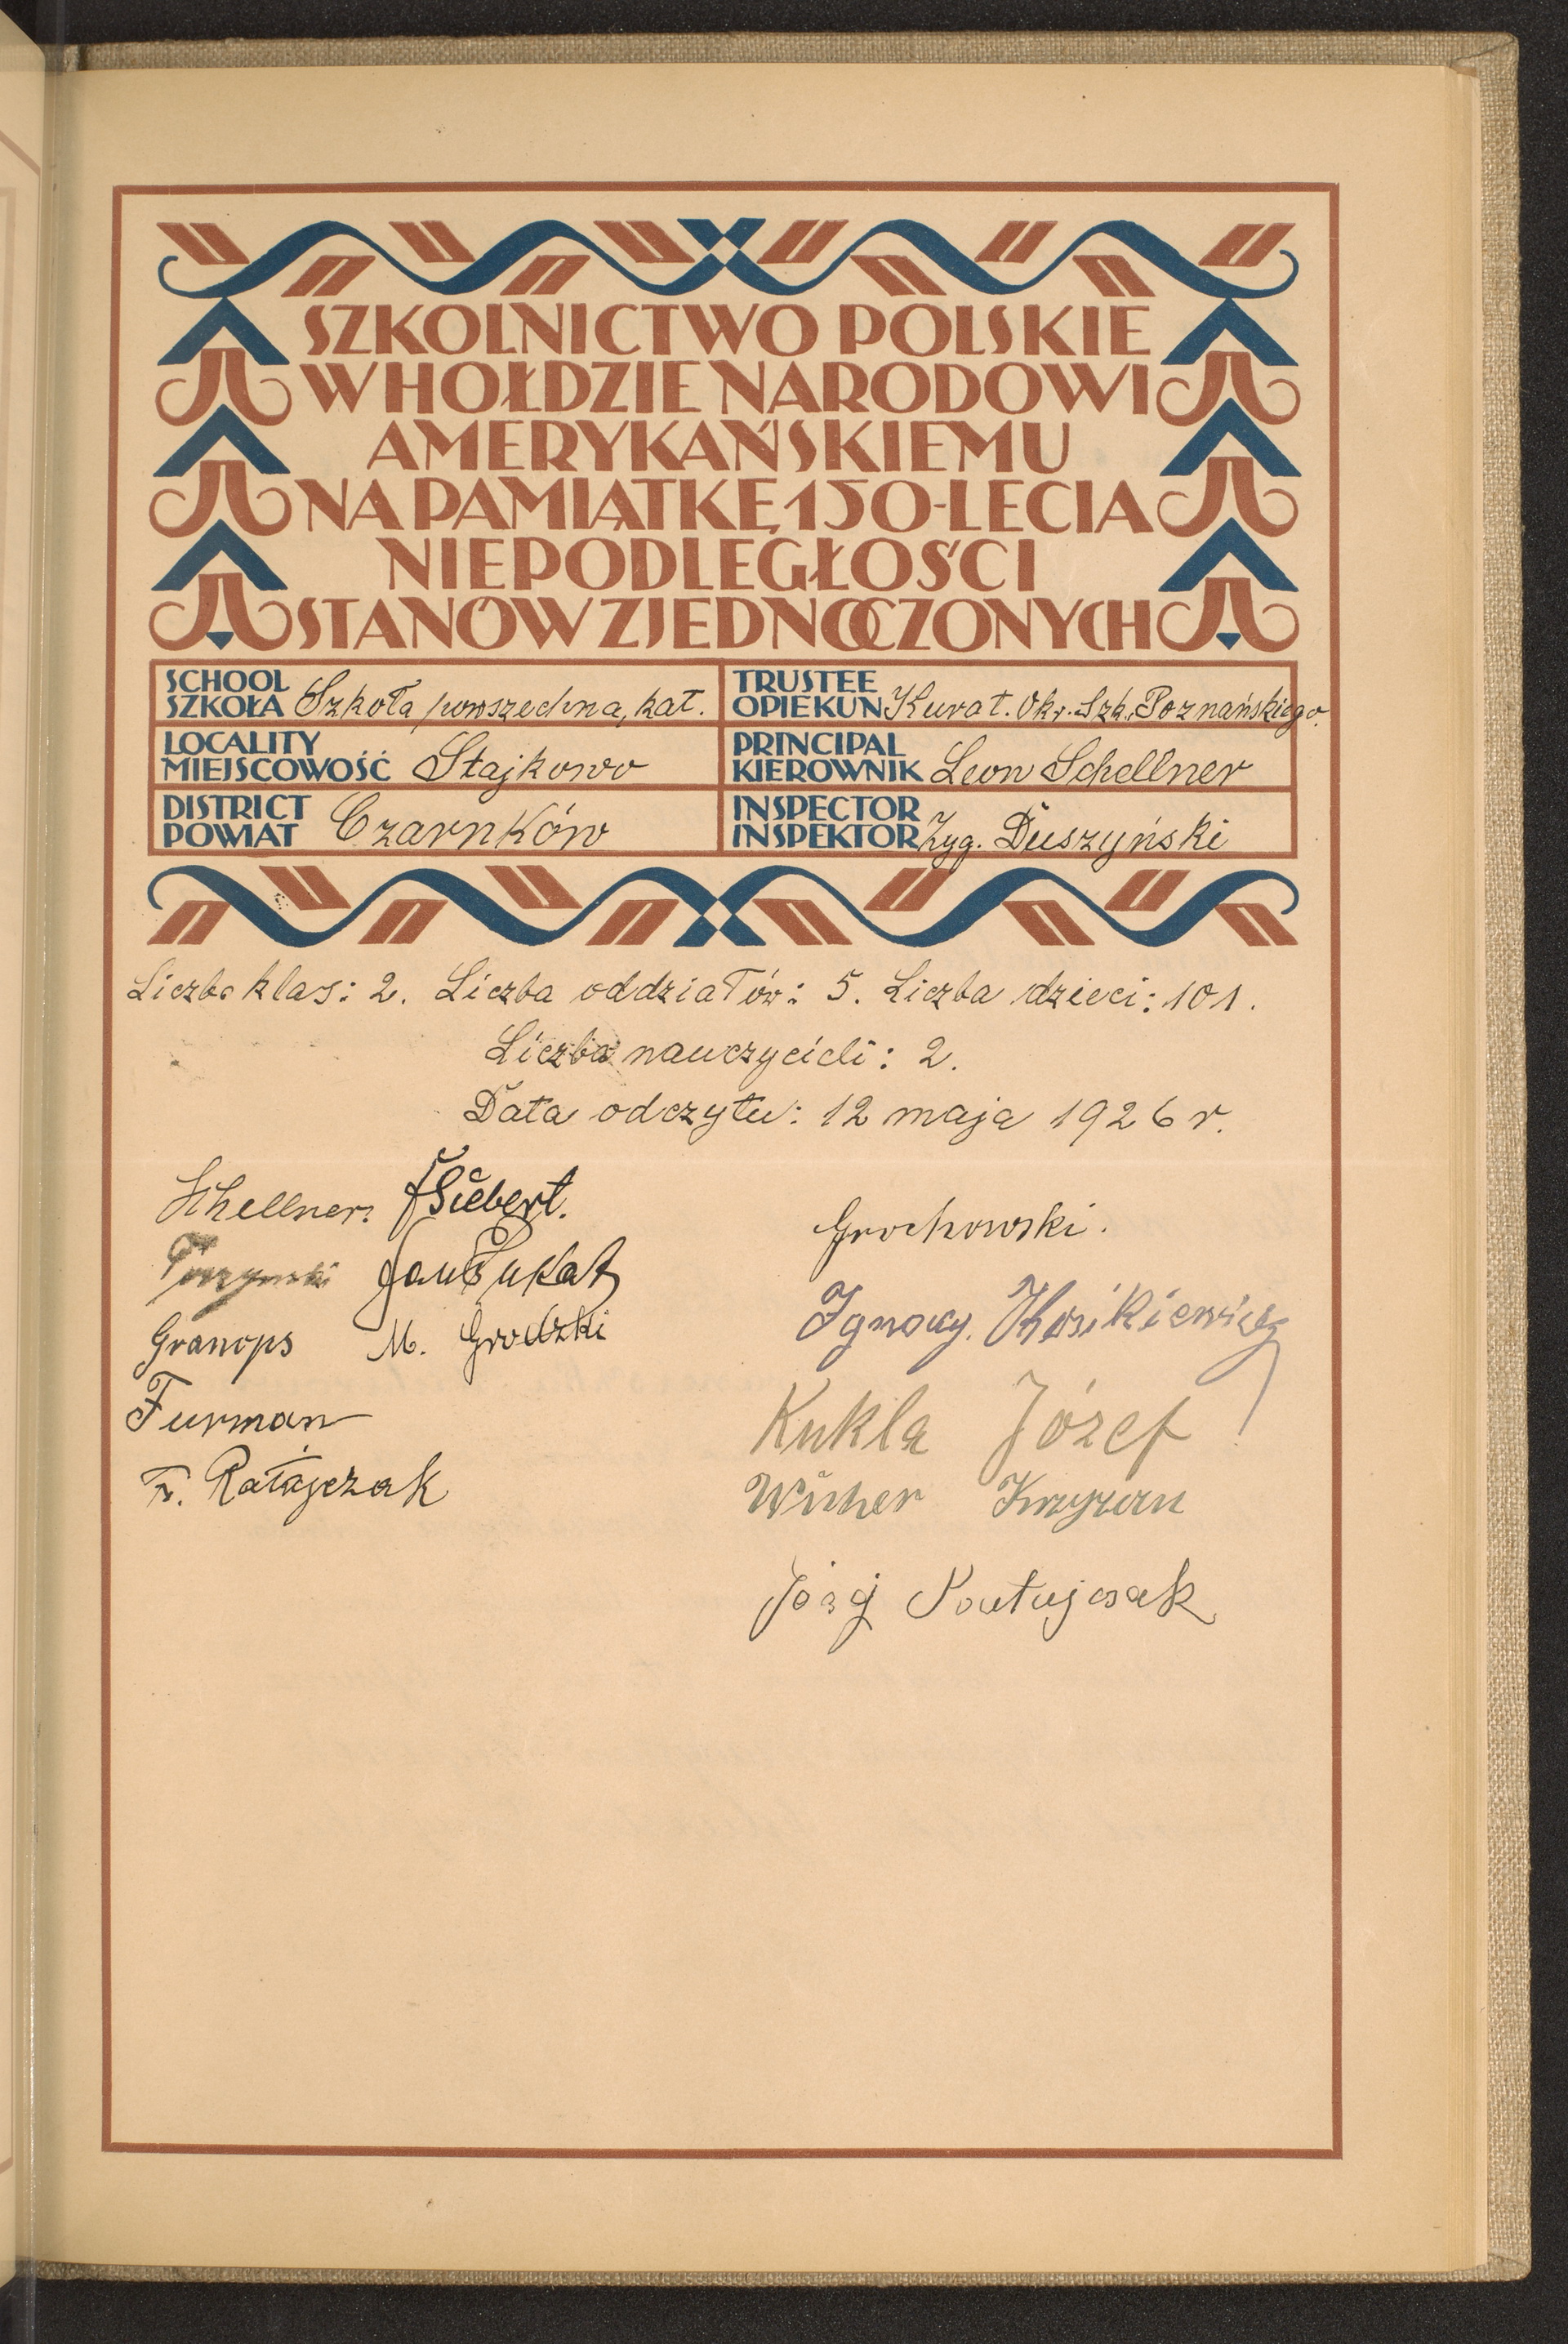 SZKOLNICTWO POLSKIE
W HOŁDZIE NARODOWI
AMERYKAŃSKIEMU
NA PAMIĄTKĘ 150-LECIA
NIEPODLEGŁOŚCI
STANÓW ZJEDNOCZONYCH
SCHOOL
SZKOŁA Szkoła powszechna, kat.
TRUSTEE
OPIEKUN Kurat. Okr. Szk. Poznańskiego.
LOCALITY
MIEJSCOWOŚĆ Stajkowo
PRINCIPAL
KIEROWNIK Leon Schellner
DISTRICT
POWIAT Czarnków
INSPECTOR
INSPEKTOR Zyg. Duszyński
Liczba klas: 2. Liczba oddziałów: 5. Liczba dzieci: 101.
Liczba nauczycieli: 2.
Data odczytu: 12 maja 1926 r.
Schellner. Siebert.
Jan
Granops M. Grodzki
Furman
Fr. Ratajczak
Grochowski.
Ignacy.
Kukla Józef